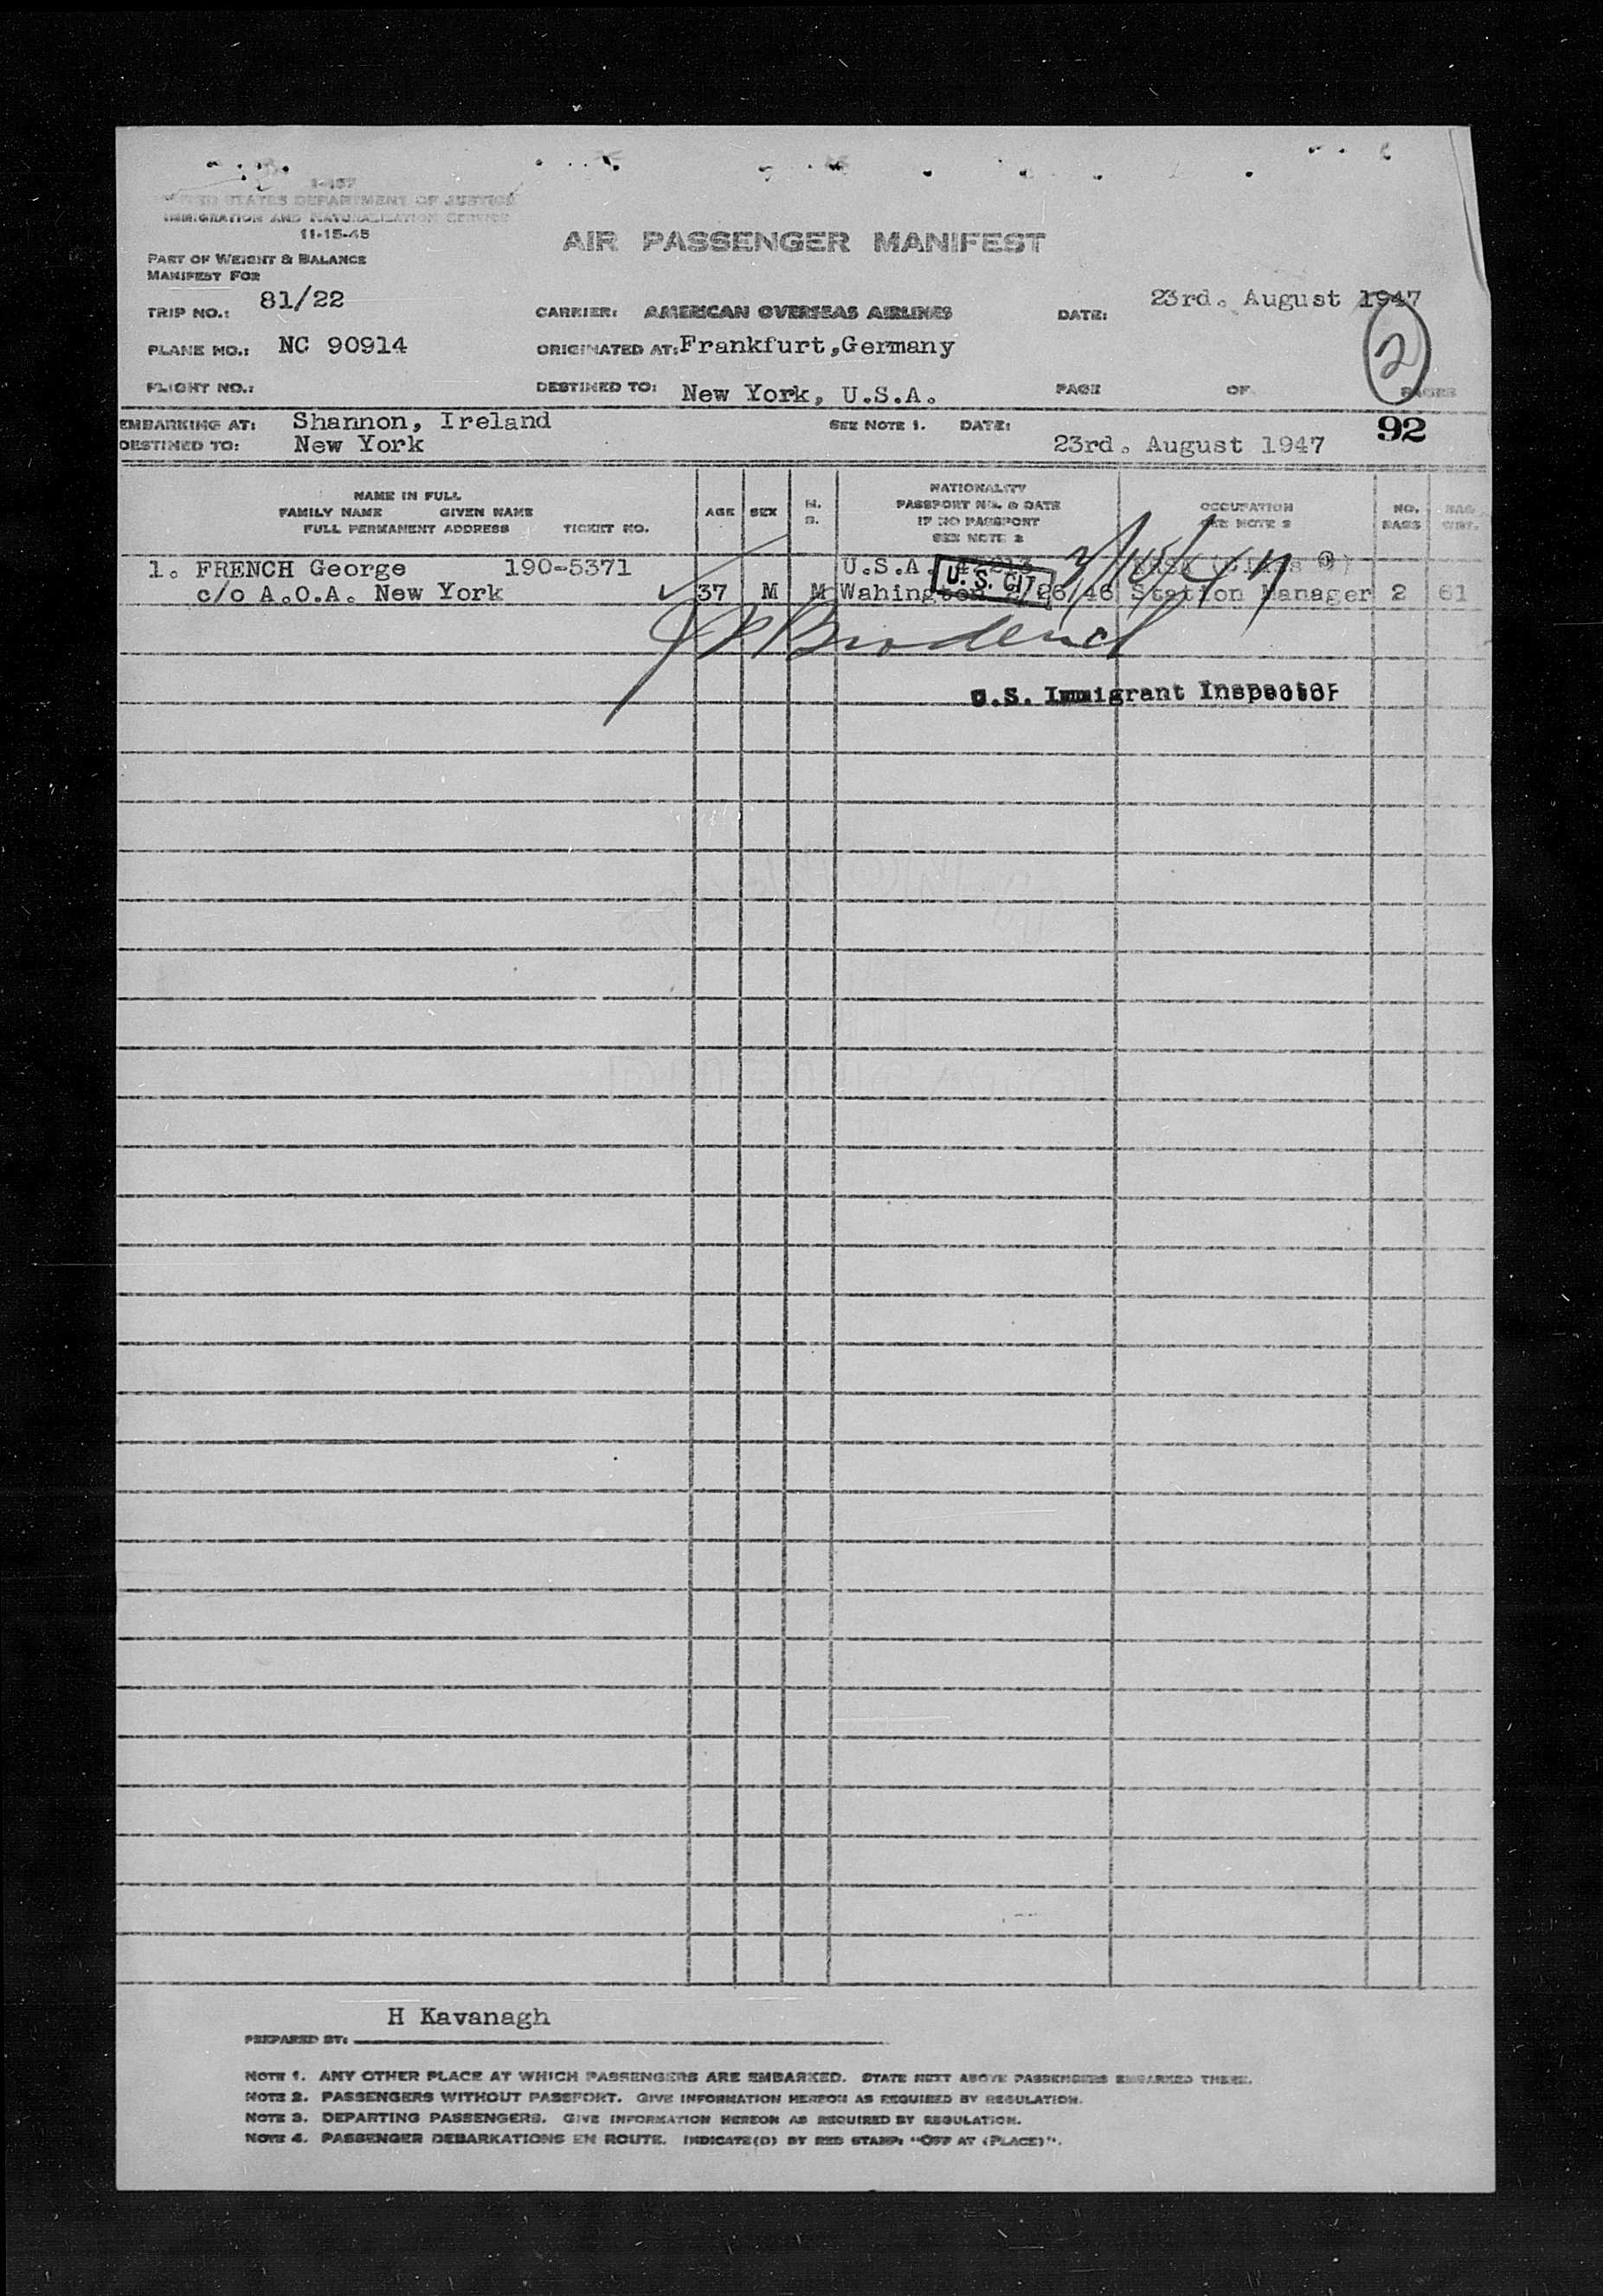 I-457
UNITED STATES DEPARTMENT OF JUSTICE
IMMIGRATION AND NATURALIZATION SERVICE
11-15-45
AIR PASSENGER MANIFEST
PART OF WEIGHT & BALANCE
MANIFEST FOR
TRIP NO.: 81/22 CARRIER: AMERICAN OVERSEAS AIRLINES DATE: 23rd. August 1947
PLANE NO.: NC 90914 ORIGINATED AT: Frankfurt, Germany 2
FLIGHT NO.: DESTINED TO: New York, U.S.A. PAGE OF PAGES
EMBARKING AT: Shannon, Ireland SEE NOTE 1. DATE: 23rd. August 1947 92
DESTINED TO: New York
NAME IN FULL
FAMILY NAME GIVEN NAME
FULL PERMANENT ADDRESS TICKET NO.
AGE SEX M. S.
NATIONALITY
PASSPORT NO. & DATE
IF NO PASSPORT
SEE NOTE 2
OCCUPATION
SEE NOTE 3
NO. BAGS
BAG WGT.
1. FRENCH George 190-5371 U.S.A.
c/o A.O.A. New York 37 M M Wahington /26/46 Station Manager 2 61
U. S. CIT
U.S. Immigrant Inspector
H Kavanagh
PREPARED BY:
NOTE 1. ANY OTHER PLACE AT WHICH PASSENGERS ARE EMBARKED. STATE NEXT ABOVE PASSENGERS EMBARKED THERE.
NOTE 2. PASSENGERS WITHOUT PASSPORT. GIVE INFORMATION HEREON AS REQUIRED BY REGULATION.
NOTE 3. DEPARTING PASSENGERS. GIVE INFORMATION HEREON AS REQUIRED BY REGULATION.
NOTE 4. PASSENGER DEBARKATIONS EN ROUTE. INDICATE(D) BY RED STAMP: "OFF AT (PLACE)".